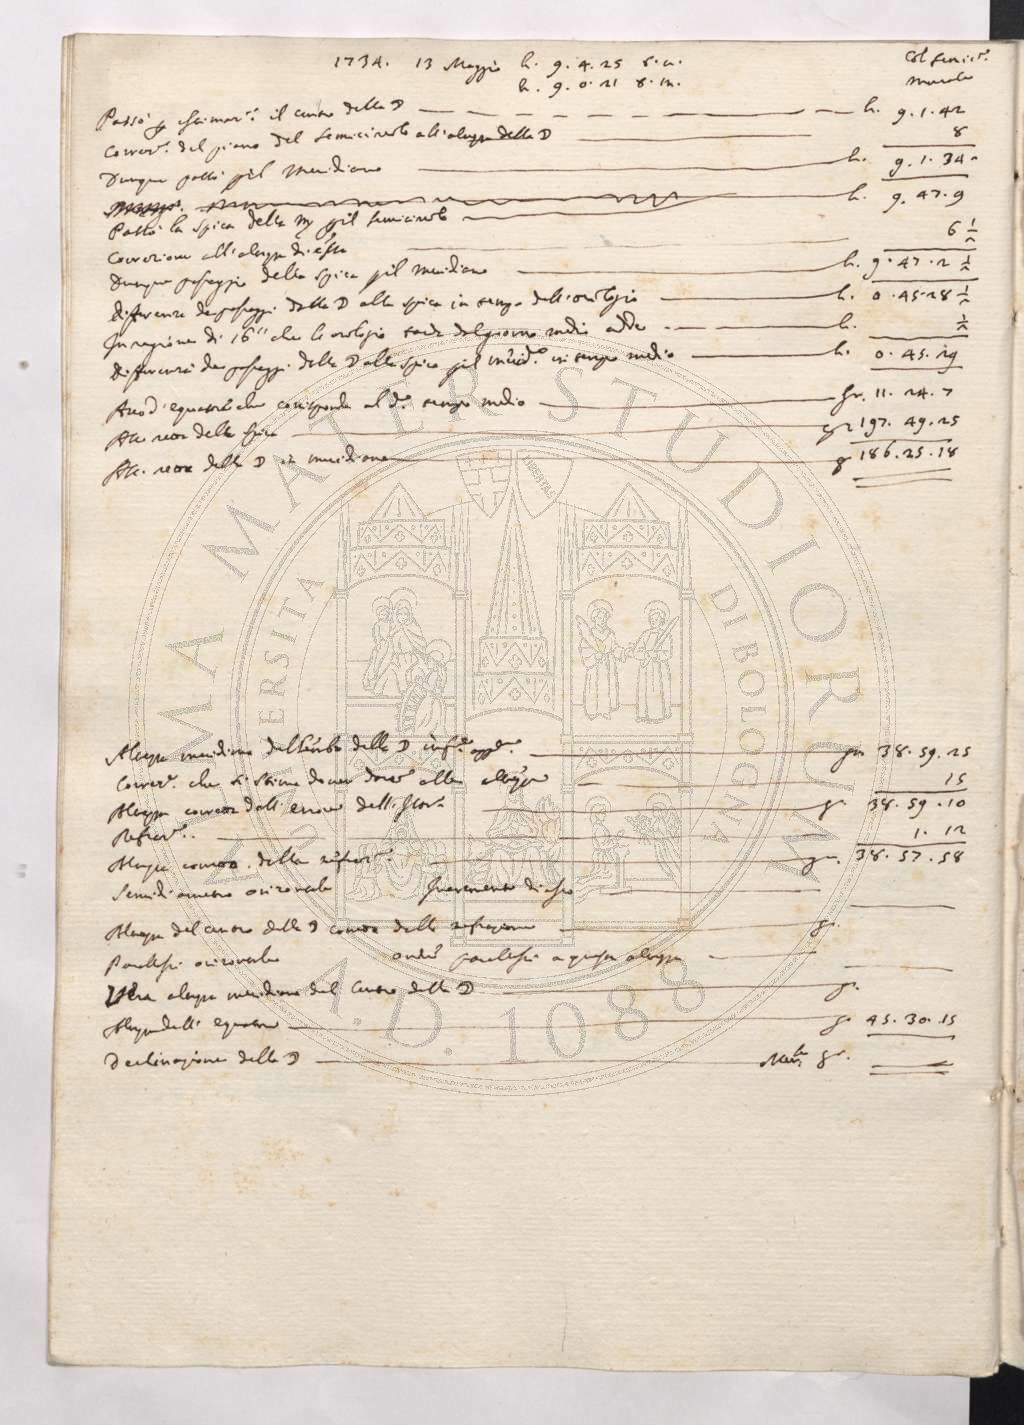 1734. 13 Maggio h. 9. 4. 25 t. u. Col semicir.º
h. 9. 0. 21 t. m. murale
Passò il centro della ☽ h. 9. 1. 42
Correz.e del piano del semicircolo all'altezza della ☽ 8
Dunque passò pel meridiano h. 9. 1. 34
Passò la spica della ♍ pel semicircolo h. 9. 47. 9
Correzione all'altezza di essa 6 ½
Dunque passaggio della spica pel meridiano h. 9. 47. 2 ½
differenza de passaggi della ☽ alla spica in tempo dell'orologio h. 0. 45. 28 ½
In ragione di 16" che l'orologio tarda dal giorno medio adde h. ½
differenza de passaggi della ☽ alla spica pel merid.º in tempo medio h. 0. 45. 29
Arco d'equatore che corrisponde al d.º tempo medio gr. 11. 24. 7
Asc. retta della spica gr 197. 49. 25
Asc. retta della ☽ in meridiano g 186. 25. 18
Altezza meridiana del lembo della ☽ inf.e app.e gr. 38. 59. 25
Correz.e che si stima dover darsi alla altezza 15
Altezza corretta dall'errore dell'Istro. g. 38. 59. 10
Refraz.e 1. 12
Altezza corretta della refraz.e gr. 38. 57. 58
Semidiametro orizontale Incremento di esso
Altezza del centro della ☽ corretta dalla refrazione g.
Parallassi orizontale onde parallassi a questa altezza
Vera altezza meridiana del centro della ☽ g.
Altezza dell'equatore g. 45. 30. 15
Declinazione della ☽ gr.
ALMA MATER STUDIORUM
UNIVERSITÀ DI BOLOGNA
LIBERTAS
A.D. 1088